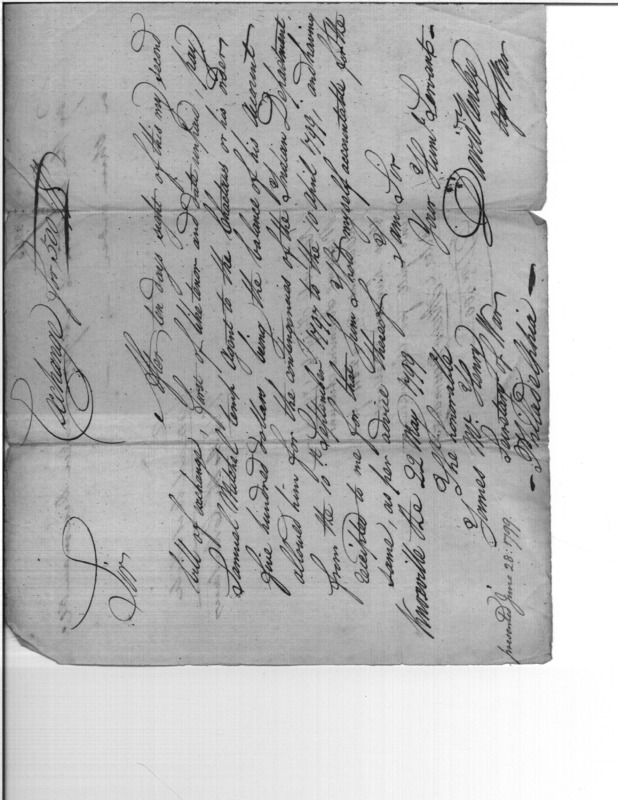 Exchange for
Sir
After ten days sight of this my second
bill of exchange, first of like tenor and date unpaid, pay
Samuel Mitchel temp Agent to the Choctaws or his order
five hundred dollars being the balance of his account
allowed him for the contingencies of the Indian Department
from the 10th September 1797 to the 10 April 1799 and having
receipted to me for that Sum I hold myself accountable for the
same, as per advice thereof
I am Sir
Your Humb. Servant
David Henley
Agt War
Knoxville the 22 May 1799
The honorable
James McHenry
Secretary of War
Philadelphia
presented June 28: 1799.